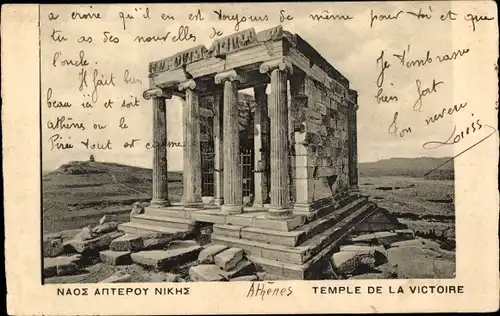 a croire qu'il en est toujours de même pour toi et que
tu as des nouvelles de
l'onde. Il fait bien
beau ici et doit
Athènes ou le
Pirée tout est calme.
Je t'embrasse
bien fort
ton neveu
Louis
ΝΑΟΣ ΑΠΤΕΡΟΥ ΝΙΚΗΣ Athènes TEMPLE DE LA VICTOIRE